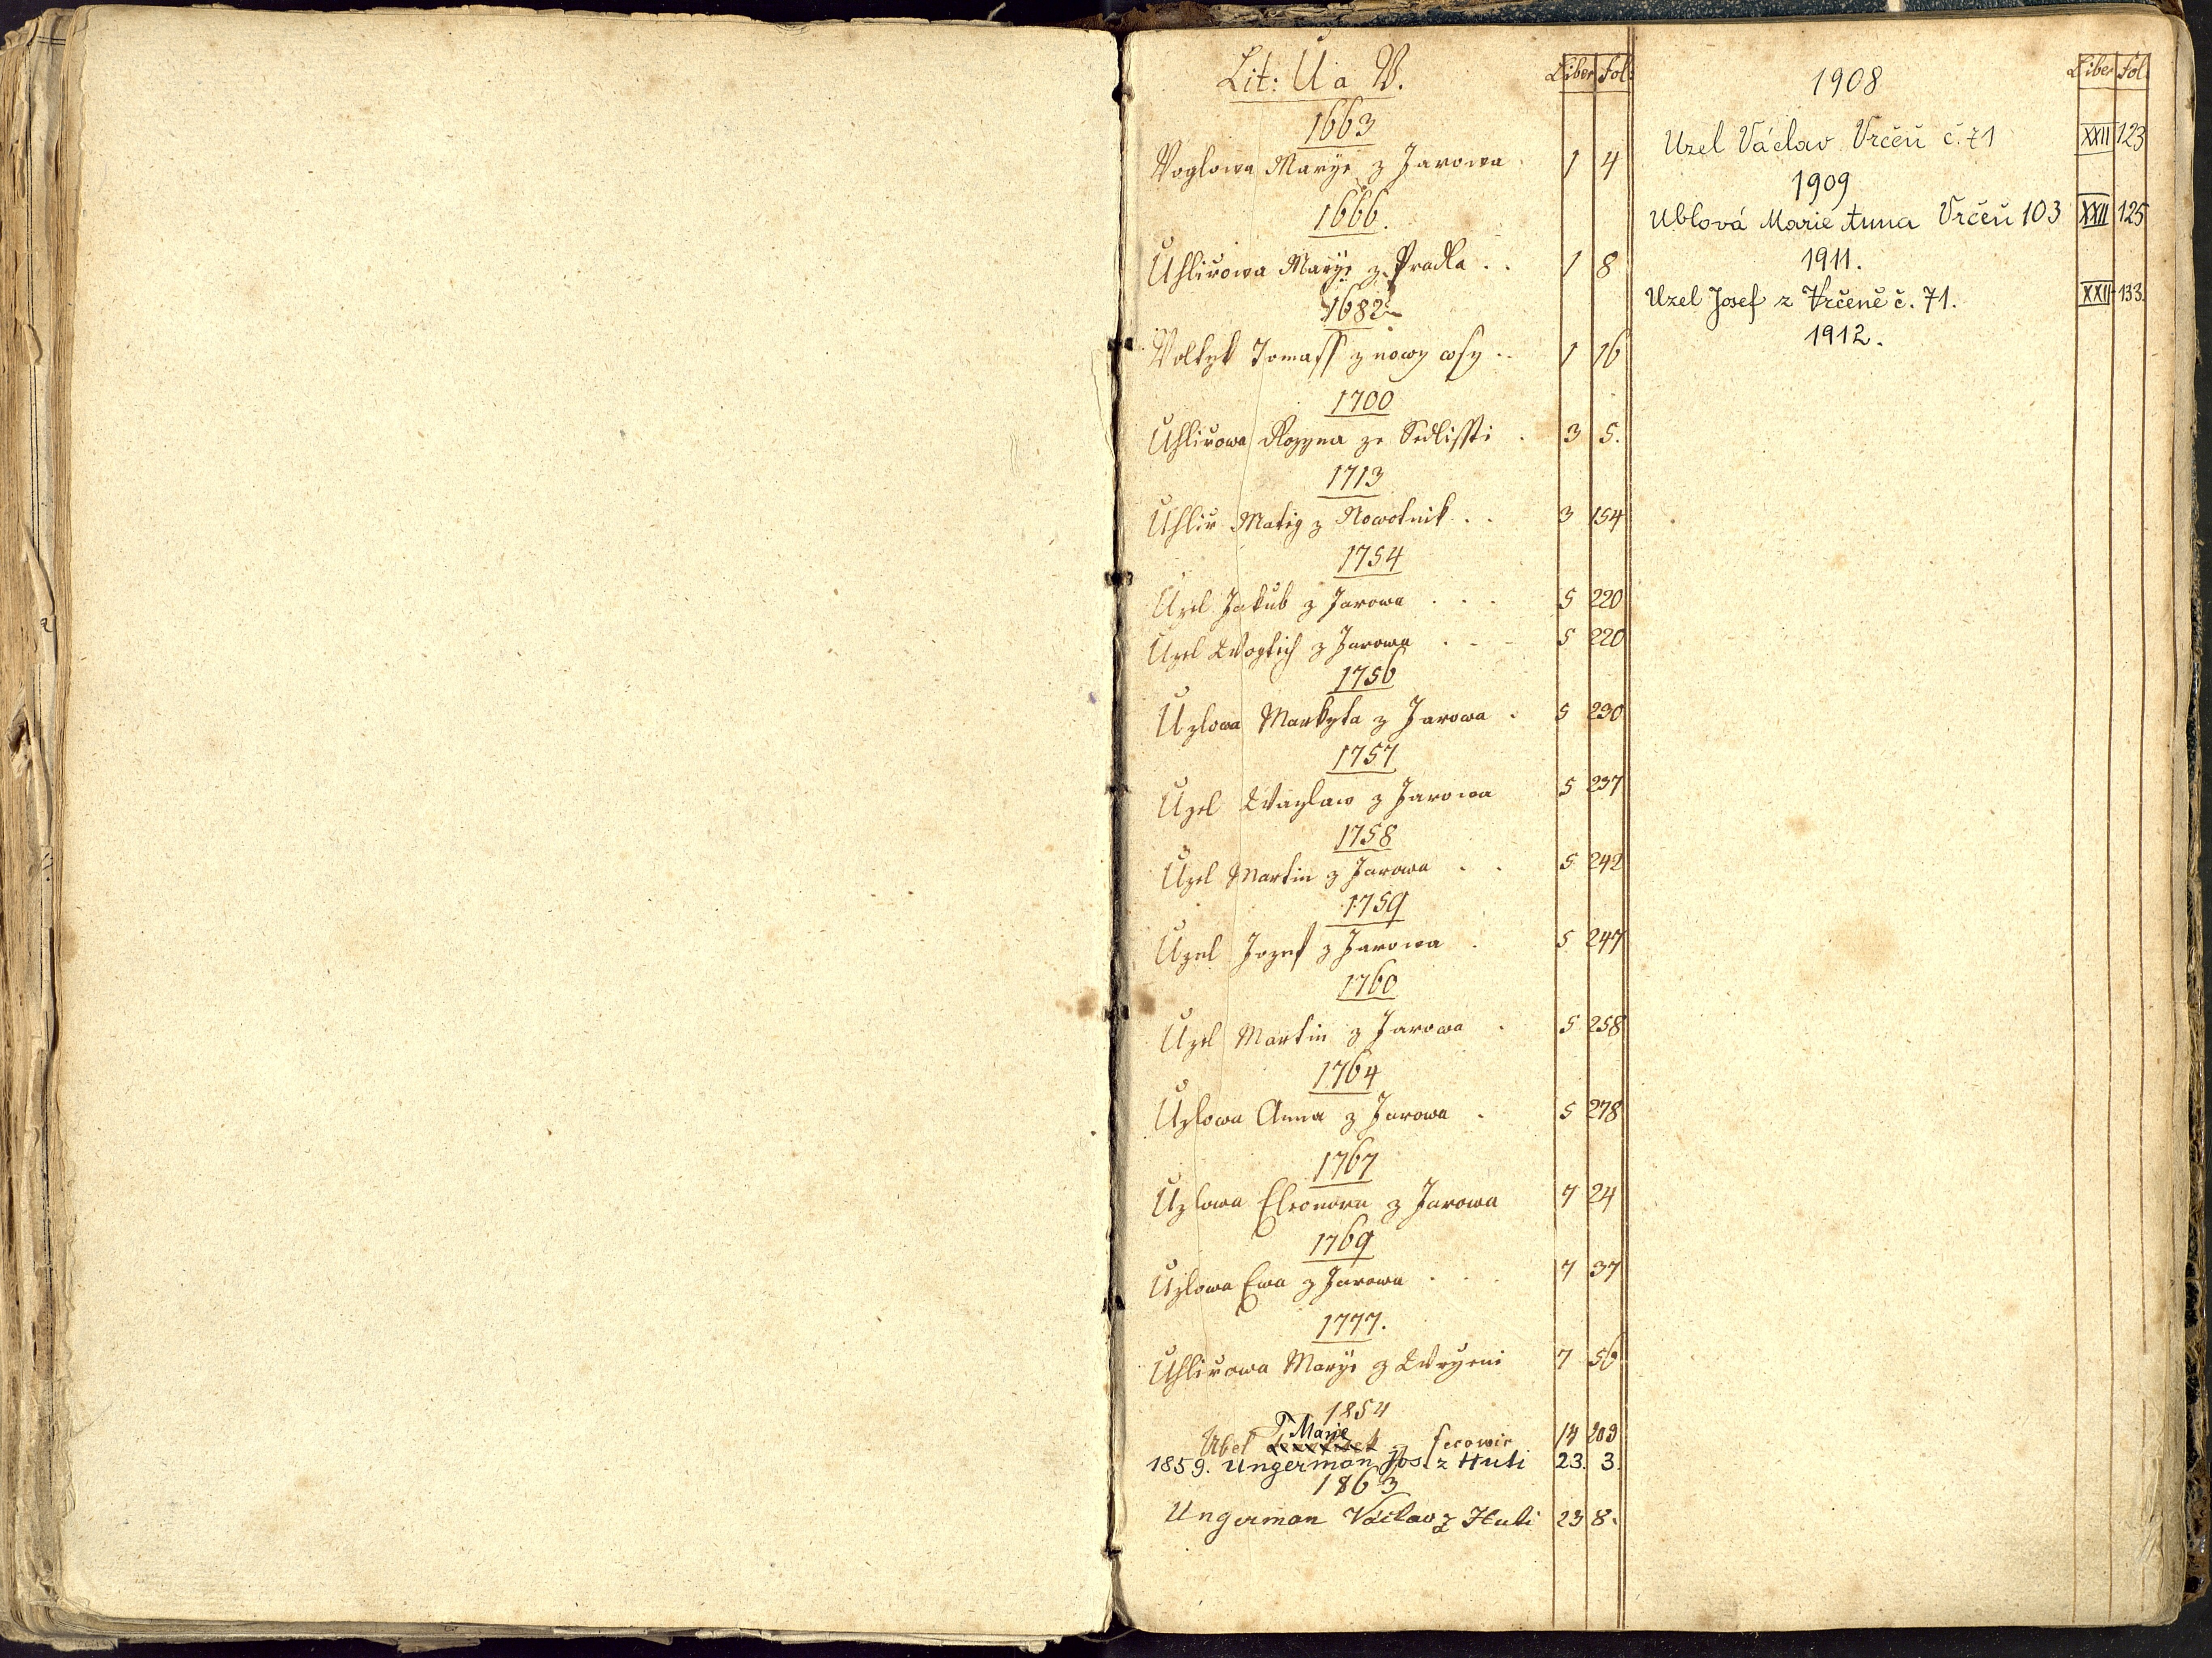 Lit: U a V. Liber Fol:
1663
Voglowa Marye z Jarowa 1 4
1666.
Uhlirowa Marye z Pradla . . 1 8
1682
Volkyt Tomass z nowy wsy . . 1 16
1700
Uhlirowa Rozyna ze Sedlisstí . 3 5.
1713
Uhlir Matig z Nowotnik . . 3 154
1754
Uzel Jakub z Jarowa . . . 5 220
Uzel Wogtich z Jarowa . - - 5 220
1756
Uzlowa Markyta z Jarowa . 5 230
1757
Uzel Waczlaw z Jarowa 5 237
1758
Uzel Martin z Jarowa . . 5 242
1759
Uzel Jozef z Jarowa . 5 247
1760
Uzel Martin z Jarowa . 5 258
1764
Uzlowa Anna z Jarowa . 5 278
1767
Uzlowa Eleonora z Jarowa 7 24
1769
Uzlowa Ewa z Jarowa . . . 7 37
1777.
Uhlirowa Marye z Wrčeni 7 56
1854
Marie
Ubel 14 203
1859. Ungerman Jos. z Huti 23. 3.
1863
Ungerman Václav z Huti 23 8.
1908 Liber Fol.
Uzel Václav Vrčeň č. 71 XXII 123
1909
Ublová Marie Anna Vrčeň 103 XXII 125
1911.
Uzel Josef z Vrčeně č. 71. XXII 133.
1912.